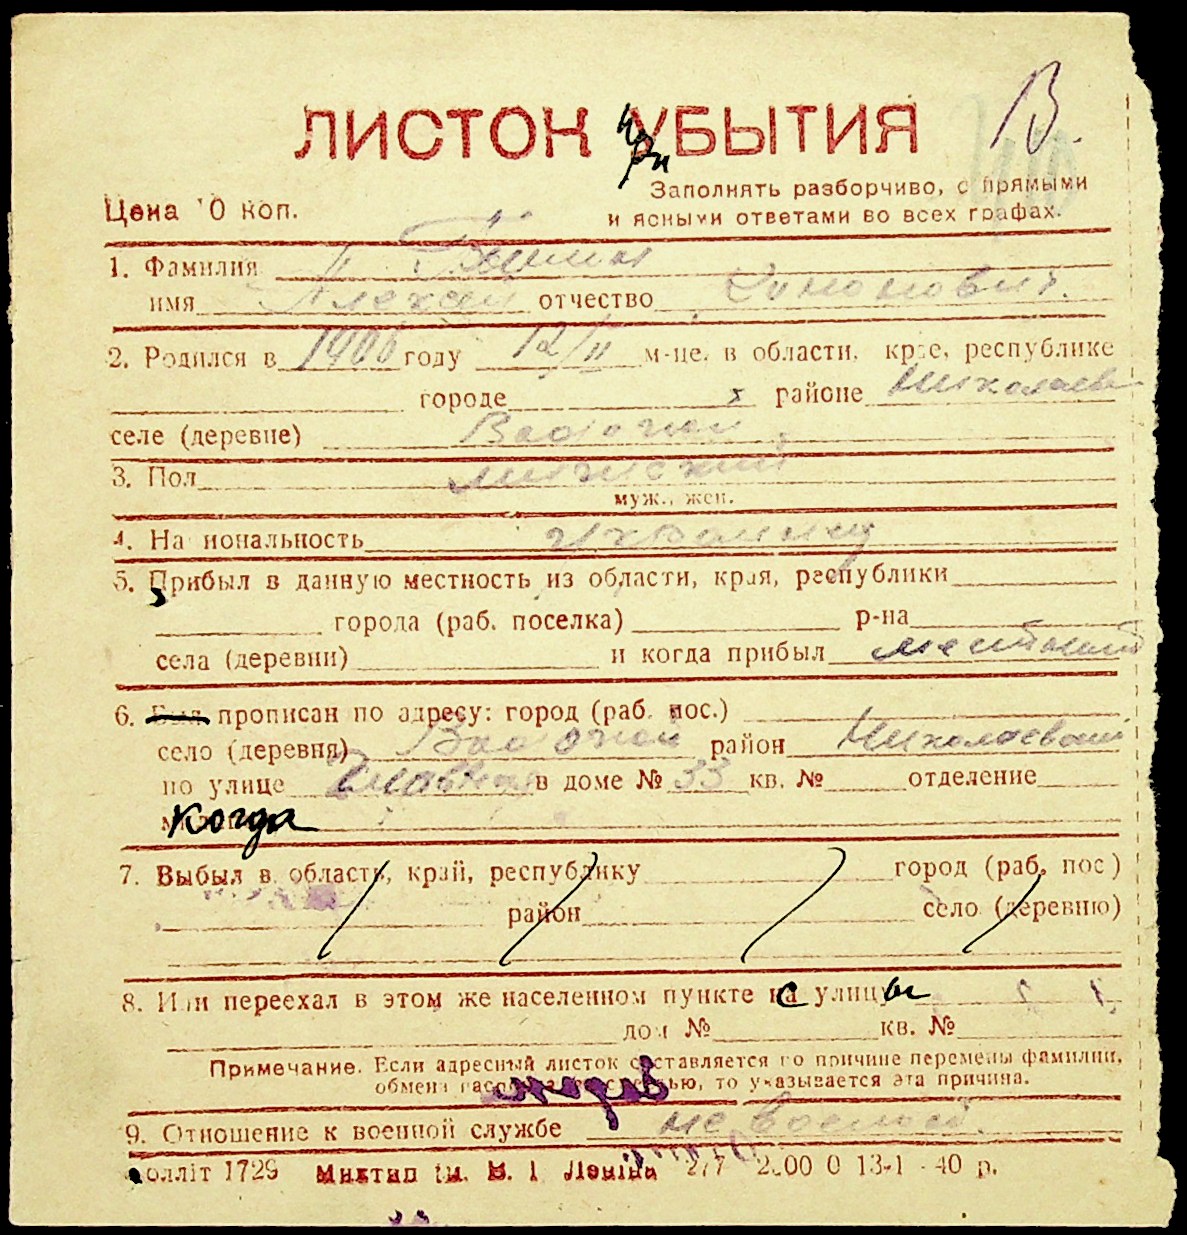 В.
ЛИСТОК УБЫТИЯ
при
Цена 10 коп.
Заполнять разборчиво, с прямыми
и ясными ответами во всех графах.
1. Фамилия
имя Алексей отчество
2. Родился в 1906 году 12/II м-це, в области, крае, республике
городе районе Николаев
селе (деревне)
3. Пол мужской
муж., жен.
4. Национальность украинец
5. Прибыл в данную местность из области, края, республики
города (раб. поселка) р-на
села (деревни) и когда прибыл местный
6. Был прописан по адресу: город (раб. пос.)
село (деревня) район Николаевский
по улице Главная в доме № 33 кв. № отделение
когда
7. Выбыл в область, край, республику город (раб. пос.)
район село (деревню)
8. Или переехал в этом же населенном пункте с улицы
дом № кв. №
Примечание. Если адресный листок составляется по причине перемены фамилии,
обмена, то указывается эта причина.
9. Отношение к военной службе
1729 277 2000 0 13-1-40 р.